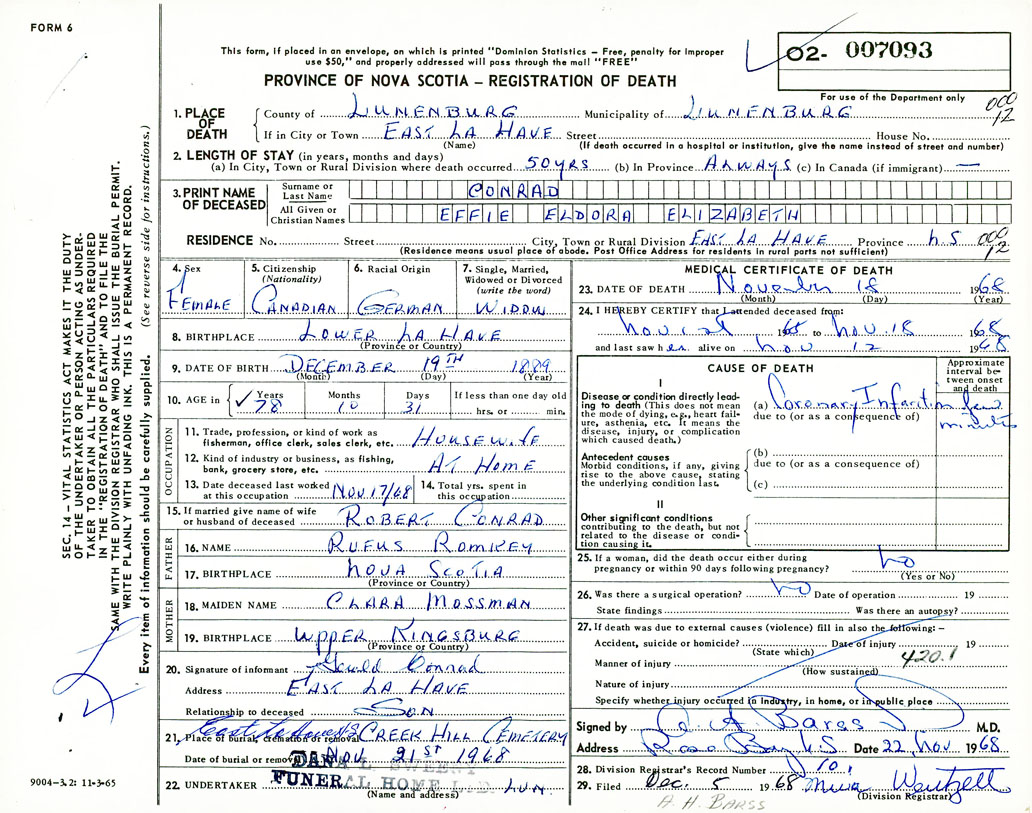 FORM 6
This form, if placed in an envelope, on which is printed "Dominion Statistics – Free, penalty for improper
use $50," and properly addressed will pass through the mail "FREE"
02- 007093
For use of the Department only
PROVINCE OF NOVA SCOTIA – REGISTRATION OF DEATH
000
12
1. PLACE OF DEATH County of LUNENBURG Municipality of LUNENBURG
If in City or Town EAST LA HAVE Street House No.
(Name) (If death occurred in a hospital or institution, give the name instead of street and number)
2. LENGTH OF STAY (in years, months and days)
(a) In City, Town or Rural Division where death occurred 50 YRS (b) In Province ALWAYS (c) In Canada (if immigrant) —
3. PRINT NAME OF DECEASED Surname or Last Name CONRAD
All Given or Christian Names EFFIE ELDORA ELIZABETH
RESIDENCE No. Street City, Town or Rural Division EAST LA HAVE Province N.S
000
12
(Residence means usual place of abode. Post Office Address for residents in rural parts not sufficient)
4. Sex FEMALE
5. Citizenship (Nationality) CANADIAN
6. Racial Origin GERMAN
7. Single, Married, Widowed or Divorced (write the word) WIDOW
8. BIRTHPLACE LOWER LA HAVE
(Province or Country)
9. DATE OF BIRTH DECEMBER 19TH 1889
(Month) (Day) (Year)
10. AGE in Years Months Days If less than one day old
78 10 31 hrs. or min.
OCCUPATION
11. Trade, profession, or kind of work as
fisherman, office clerk, sales clerk, etc. HOUSEWIFE
12. Kind of industry or business, as fishing,
bank, grocery store, etc. AT HOME
13. Date deceased last worked
at this occupation NOV 17/68
14. Total yrs. spent in
this occupation
15. If married give name of wife
or husband of deceased ROBERT CONRAD
FATHER
16. NAME RUFUS ROMKEY
17. BIRTHPLACE NOVA SCOTIA
(Province or Country)
MOTHER
18. MAIDEN NAME CLARA MOSSMAN
19. BIRTHPLACE UPPER KINGSBURG
(Province or Country)
20. Signature of informant Gerald Conrad
Address EAST LA HAVE
Relationship to deceased SON
21. Place of burial, cremation or removal CREEK HILL CEMETERY
Date of burial or removal NOV. 21ST 1968
DANA L. SWEENY
FUNERAL HOME LTD.
22. UNDERTAKER LUN.
(Name and address)
MEDICAL CERTIFICATE OF DEATH
23. DATE OF DEATH November 18 1968
(Month) (Day) (Year)
24. I HEREBY CERTIFY that I attended deceased from:
Nov 1st 1965 to Nov. 18 1968
and last saw her alive on Nov 12 1968
CAUSE OF DEATH
Approximate interval between onset and death
I
Disease or condition directly leading to death (This does not mean the mode of dying, e.g., heart failure, asthenia, etc. It means the disease, injury, or complication which caused death.)
(a) Coronary Infarction few minutes
due to (or as a consequence of)
Antecedent causes
Morbid conditions, if any, giving rise to the above cause, stating the underlying condition last.
(b)
due to (or as a consequence of)
(c)
II
Other significant conditions
contributing to the death, but not related to the disease or condition causing it.
25. If a woman, did the death occur either during
pregnancy or within 90 days following pregnancy? No
(Yes or No)
26. Was there a surgical operation? No Date of operation 19
State findings Was there an autopsy?
27. If death was due to external causes (violence) fill in also the following: –
Accident, suicide or homicide? Date of injury 19
(State which)
420.1
Manner of injury
(How sustained)
Nature of injury
Specify whether injury occurred in industry, in home, or in public place
Signed by A. H. Barss M.D.
Address Rose Bay N.S Date 22 Nov 1968
28. Division Registrar's Record Number 101
29. Filed Dec. 5 1968
(Division Registrar)
A. H. BARSS
SEC. 14 – VITAL STATISTICS ACT MAKES IT THE DUTY
OF THE UNDERTAKER OR PERSON ACTING AS UNDER-
TAKER TO OBTAIN ALL THE PARTICULARS REQUIRED
IN THE "REGISTRATION OF DEATH" AND TO FILE THE
SAME WITH THE DIVISION REGISTRAR WHO SHALL ISSUE THE BURIAL PERMIT.
WRITE PLAINLY WITH UNFADING INK. THIS IS A PERMANENT RECORD.
Every item of information should be carefully supplied. (See reverse side for instructions.)
9004-3.2: 11-3-65